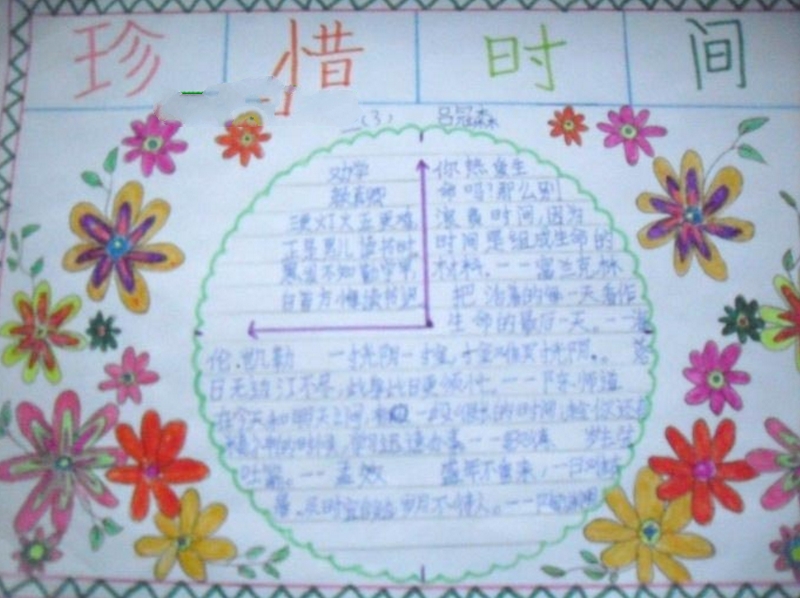 珍惜时间
(3) 吕冠森
劝学
颜真卿
三更灯火五更鸡
正是男儿读书时
黑发不知勤学早
白首方悔读书迟
你热爱生
命吗?那么别
浪费时间,因为
时间是组成生命的
材料。——富兰克林
把活着的每一天看作
生命的最后一天。——海
伦.凯勒 一寸光阴一寸金,寸金难买寸光阴。
日无边江不尽,此身此日更须忙。——陈师道
在今天和明天之间,有一段很长的时间,趁你还
的时候,学习迅速办事——歌德
——孟效 盛年不重来,一日
晨。及时宜自 岁月不待人。——陶渊明